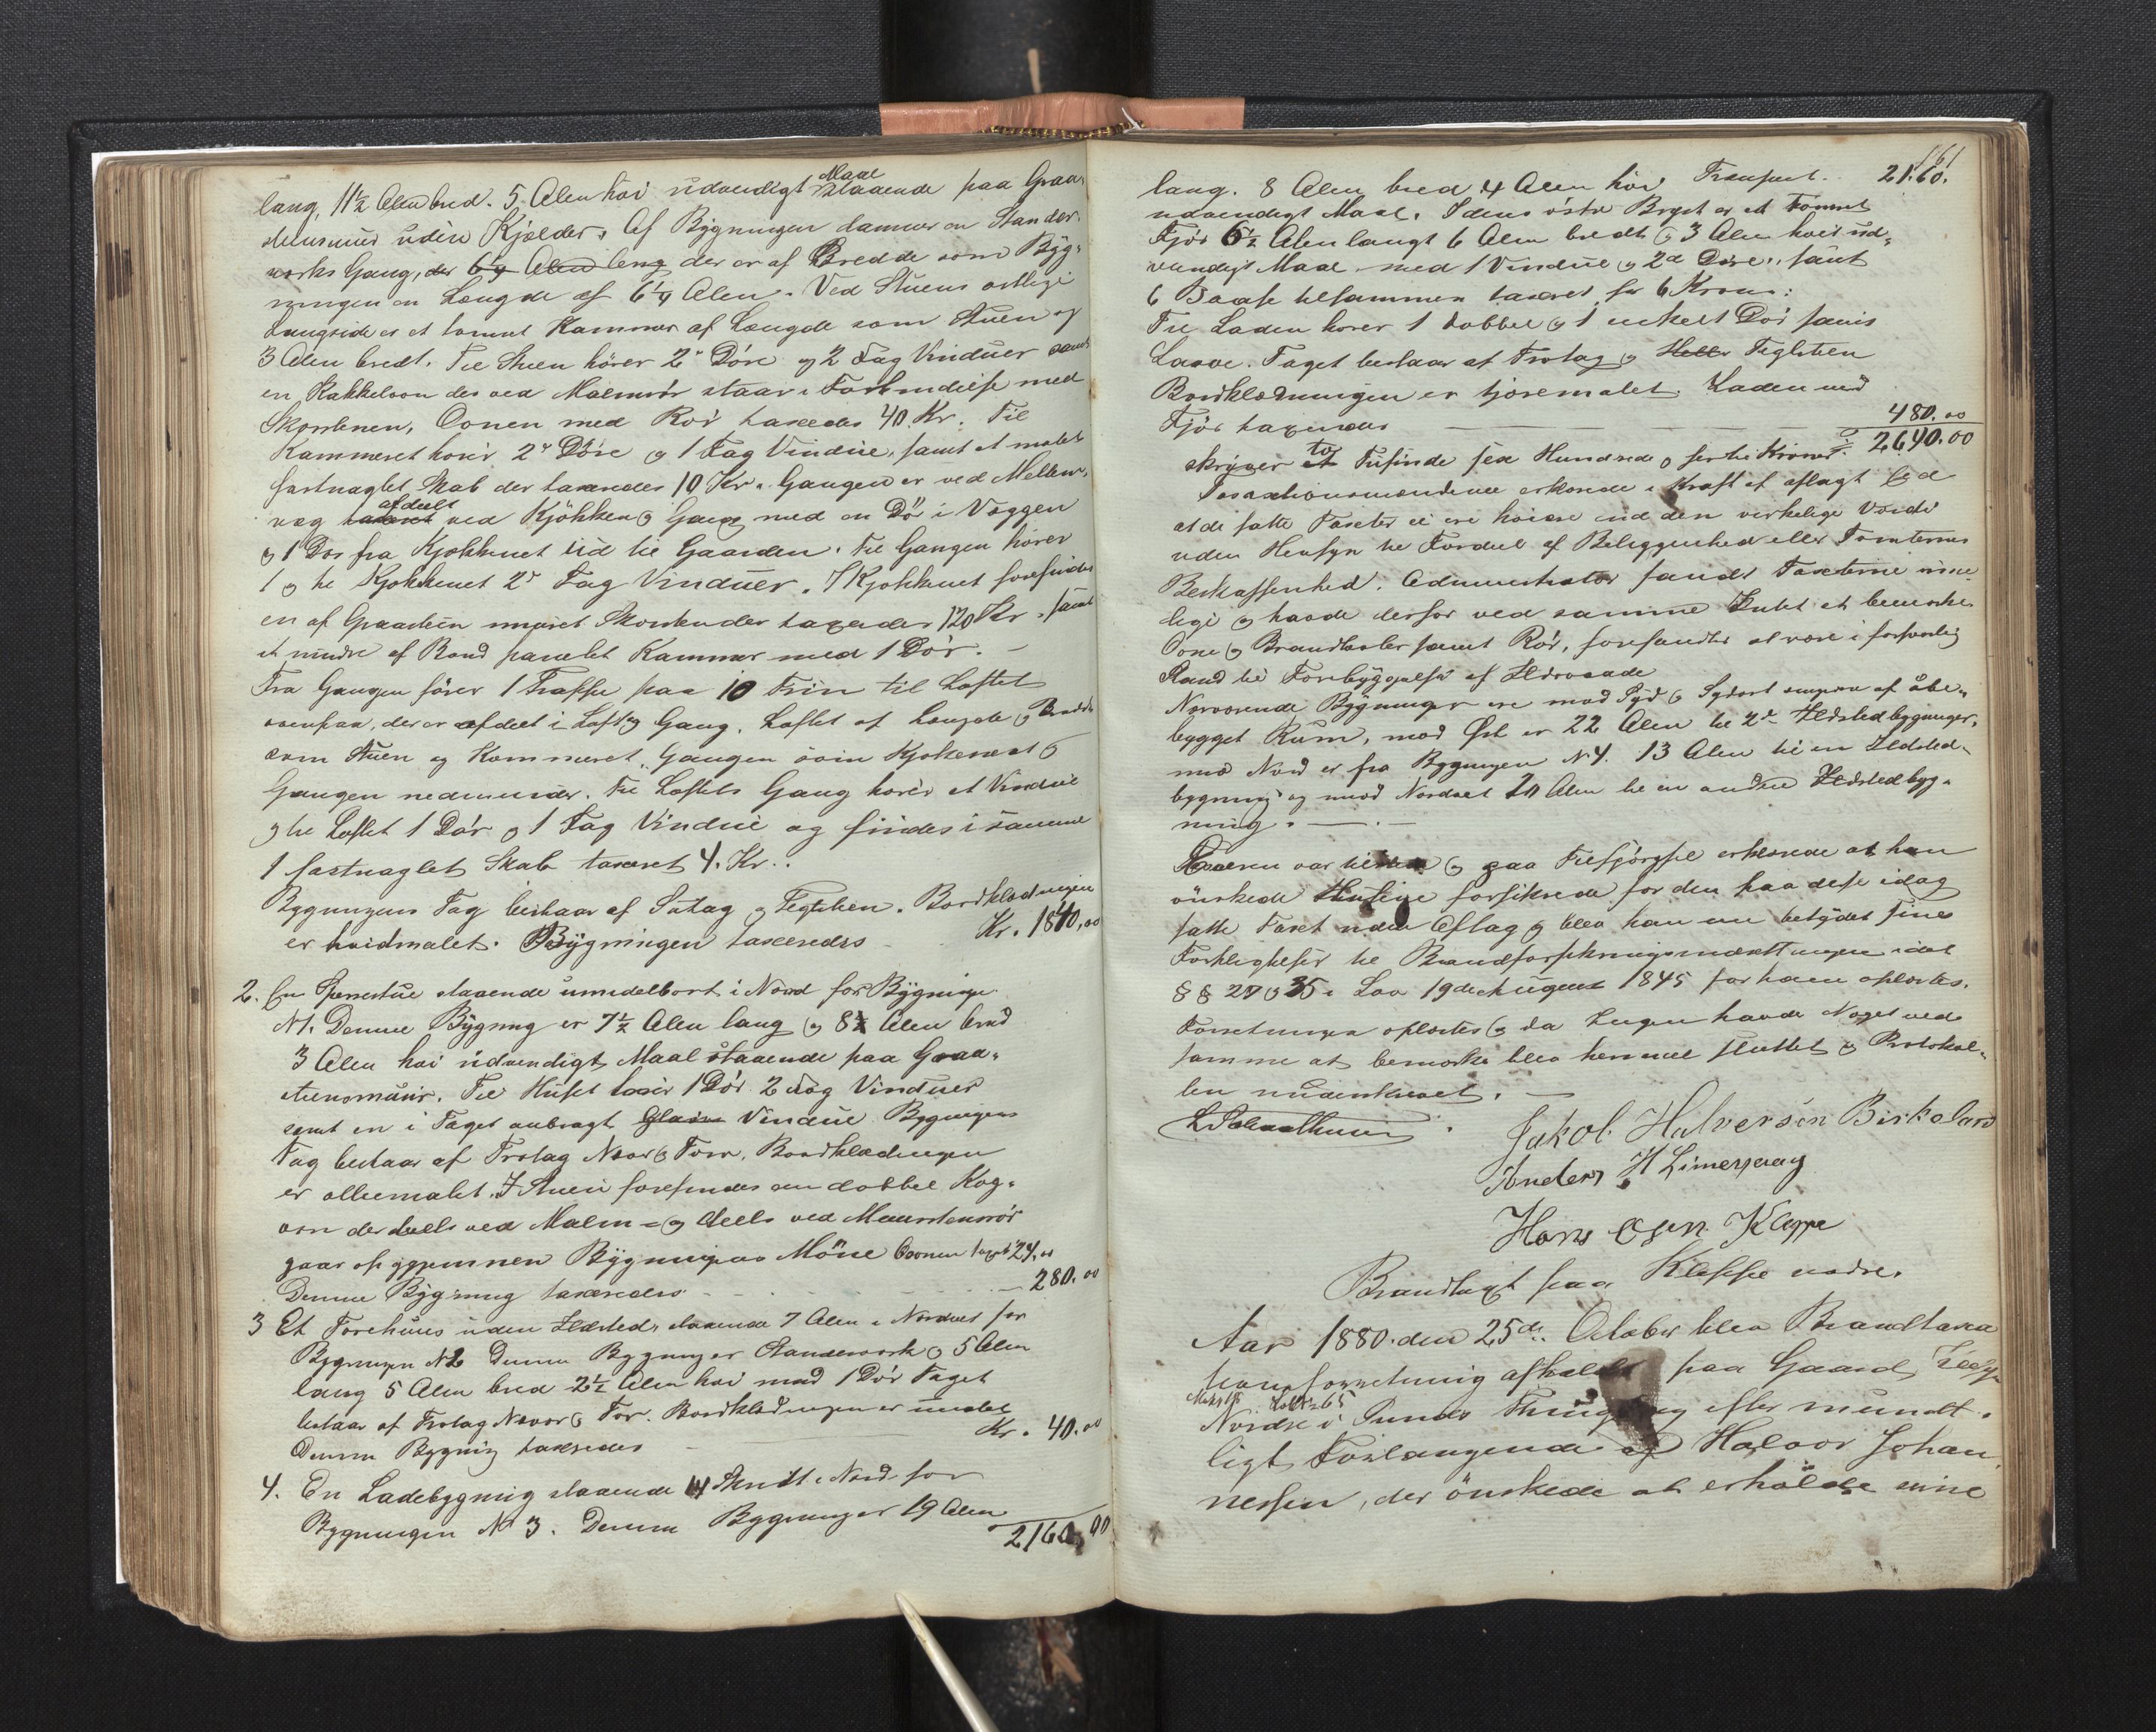 lang, 11½ Alen bred. 5 Alen høi udvendigt Maal staaende paa Graa-
steensmuur uden Kjælder. Af Bygningen danner en Stander-
værks Gang, der 6¼ Alen lang der er af Bredde som Byg-
ningen en Længde af 6¼ Alen. Ved Stuens østlige
Langside er et tømret Kammer af Længde som Stuen og
3 Alen bredt. Til Stuen hører 2de Døre og 2 Fag Vinduer samt
en Kakkelovn der ved Malmrør staar i Forbindelse med
Skorstenen, Ovnen med Rør taxeredes 40 Kr. Til
Kammeret hører 2de Døre og 1 Fag Vindue, samt et malet
fastnaglet Skab der taxeredes 10 Kr. Gangen er ved Mellem-
væg taxeret afdeelt ved Kjøkken og Gang med en Dør i Væggen
og 1 Dør fra Kjøkkenet ud til Gaarden. Til Gangen hører
1 og til Kjøkkenet 2de Fag Vinduer. I Kjøkkenet forefindes
en af Graasteen muret Skorsten der taxeredes 120 Kr. samt
et mindre af Bord panelet Kammer med 1 Dør. –
Fra Gangen fører 1 Trappe paa 10 Trin til Loftet
ovenpaa, der er afdeelt i Loft og Gang. Loftet af Længde og Bredde
som Stuen og Kammeret, Gangen som Kjøkenet og
Gangen nedenunder. Til Loftets Gang hører et Vindue
og til Loftet 1 Dør og 1 Fag Vindue og findes i samme
1 fastnaglet Skab taxeret 4 Kr.
Bygningens Tag bestaar af Sutag og Teglsteen. Bordklædningen
er hvidmalet. Bygningen taxeredes Kr. 1840,00
2. En staaende umidelbart i Nord for Bygningen
N1. Denne Bygning er 7½ Alen lang og 8½ Alen bred
3 Alen høi udvendigt Maal staaende paa Graa-
steensmuur. Til Huset hører 1 Dør 2 Fag Vinduer
samt en i Taget anbragt Glasru Vindue Bygningens
Tag bestaar af Trotag Næver og Torv, Bordklædningen
er olliemalet. I Stuen forefindes en dobbel Kog-
ovn der deels ved Malm- og deels ved Muurstensrør
gaar op gjennem Bygningens Møne Ovnen taxeret 24,00
Denne Bygning taxeredes 280.00
3 Et Torvhuus uden Ildsted, staaende 7 Alen i Nordvest for
Bygningen N2 Denne Bygning er Standerværk og 5 Alen
lang 5 Alen bred 2½ Alen høi med 1 Dør Taget
bestaar af Trotag Næver og Torv. Bordklædningen er umalet
Denne Bygning taxeredes Kr. 40.00
4. En Ladebygning staaende 14 Skridt i Nord for
Bygningen N 3. Denne Bygning er 19 Alen
2160,00
161
lang. 8 Alen bred 4 Alen høi Transport. 2160.
udvendigt Maal. I dens østre Bryst er et Tømret
Fjøs 6½ Alen langt 6 Alen bredt og 3 Alen høit ud-
vendigt Maal med 1 Vindue og 2de Døre, samt
6 Baase tilsammen taxeret for 6 Kroner:
Til Laden hører 1 dobbel og 1 enkelt Dør samt
Laave. Taget bestaar af Trotag og Heller Teglsten
Bordklædningen er tjæremalet Laden med
Fjøs taxeredes 480.00
skriver et to Tusinde sex Hundrede ogførti Kroner. 2640.00
Taxationsmændene erklærede i Kraft af aflagt Eed
at de satte Taxter ei ere høiere end den virkelige Værdi
uden Hensyn til Fordeel af Beliggenhed eller Tomternes
Beskaffenhed. Administrator fandt Taxterne rime-
lige og havde derfor ved samme Intet at bemærke
Ovne og Brandtavler samt Rør, forefandtes at være i forsvarlig
Stand til Forebyggelse af Ildsvaade
Nærværende Bygninger ere mod Syd og Sydost omgivne af ube-
bygget Rum, mod Øst er 22 Alen til 2de Ildstedbygninger,
mod Nord er fra Bygningen N 4. 13 Alen til en Ildsted-
bygning og mod Nordvest 20 Alen til en anden Ildstedbyg-
ning. —.—
Eieren var tilstede og paa Tilspørgsel erklærede at han
ønskede Husene forsikrede for den paa disse idag
satte Taxt uden Aftag og blev han nu betydet sine
Forpligtelser til Brandforsikringsindretningen idet
§ § 27 og 35 i Lov 19de August 1845 for ham oplæstes.
Forretningen oplæstes og da Ingen havde Noget ved
samme at bemærke blev hermed sluttet og Protokol-
len underskrevet. —
Jakob Halversen Birkeland
Anders H Limespaag
Hans Osen Kleppe
Brandtaxt paa Kleppe nedre.
Aar 1880. den 25de October blev Brandtaxa
tionsforretning afholdt paa Gaard Kleppe
Matr Løbe 65
Nordre i Sunds Thinglag efter mundt-
ligt Forlangende af Halvor Johan
nessen, der ønskede at erholde sine